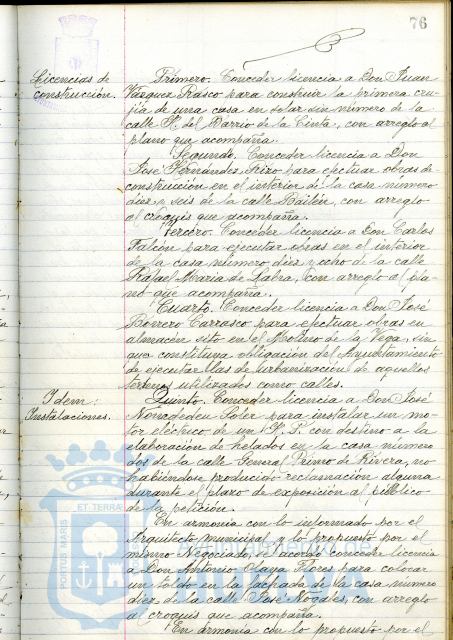 76
Licencias de
construcción.
Primero. Conceder licencia a Don Juan
Vázquez Rasco para construir la primera cru-
jía de una casa en solar sin número de la
calle del Barrio de la Cinta, con arreglo al
plano que acompaña.
Segundo. Conceder licencia a Don
José Fernández para efectuar obras de
construcción en el interior de la casa número
diez y seis de la calle Bailén, con arreglo
al croquis que acompaña.
Tercero. Conceder licencia a Don Carlos
Falcón para ejecutar obras en el interior
de la casa número diez y ocho de la calle
Rafael María de Labra, con arreglo al pla-
no que acompaña.
Cuarto. Conceder licencia a Don José
Borrero Carrasco para efectuar obras en
almacén sito en el Molino de la Vega, sin
que constituya obligación del Ayuntamiento
de ejecutar las de urbanización de aquellos
terrenos utilizados como calles.
Idem:
Instalaciones.
Quinto. Conceder licencia a Don José
Soler para instalar un mo-
tor eléctrico de un H. P. con destino a la
elaboración de helados en la casa número
dos de la calle General Primo de Rivera, no
habiéndose producido reclamación alguna
durante el plazo de exposición al público
de la petición.
En armonía con lo informado por el
Arquitecto municipal y lo propuesto por el
mismo Negociado, se acordó conceder licencia
a Don Antonio Olaya Flores para colocar
un toldo en la fachada de la casa número
diez de la calle José Nogales, con arreglo
al croquis que acompaña.
En armonía con lo propuesto por el
PORTUS MARIS ET TERRAE